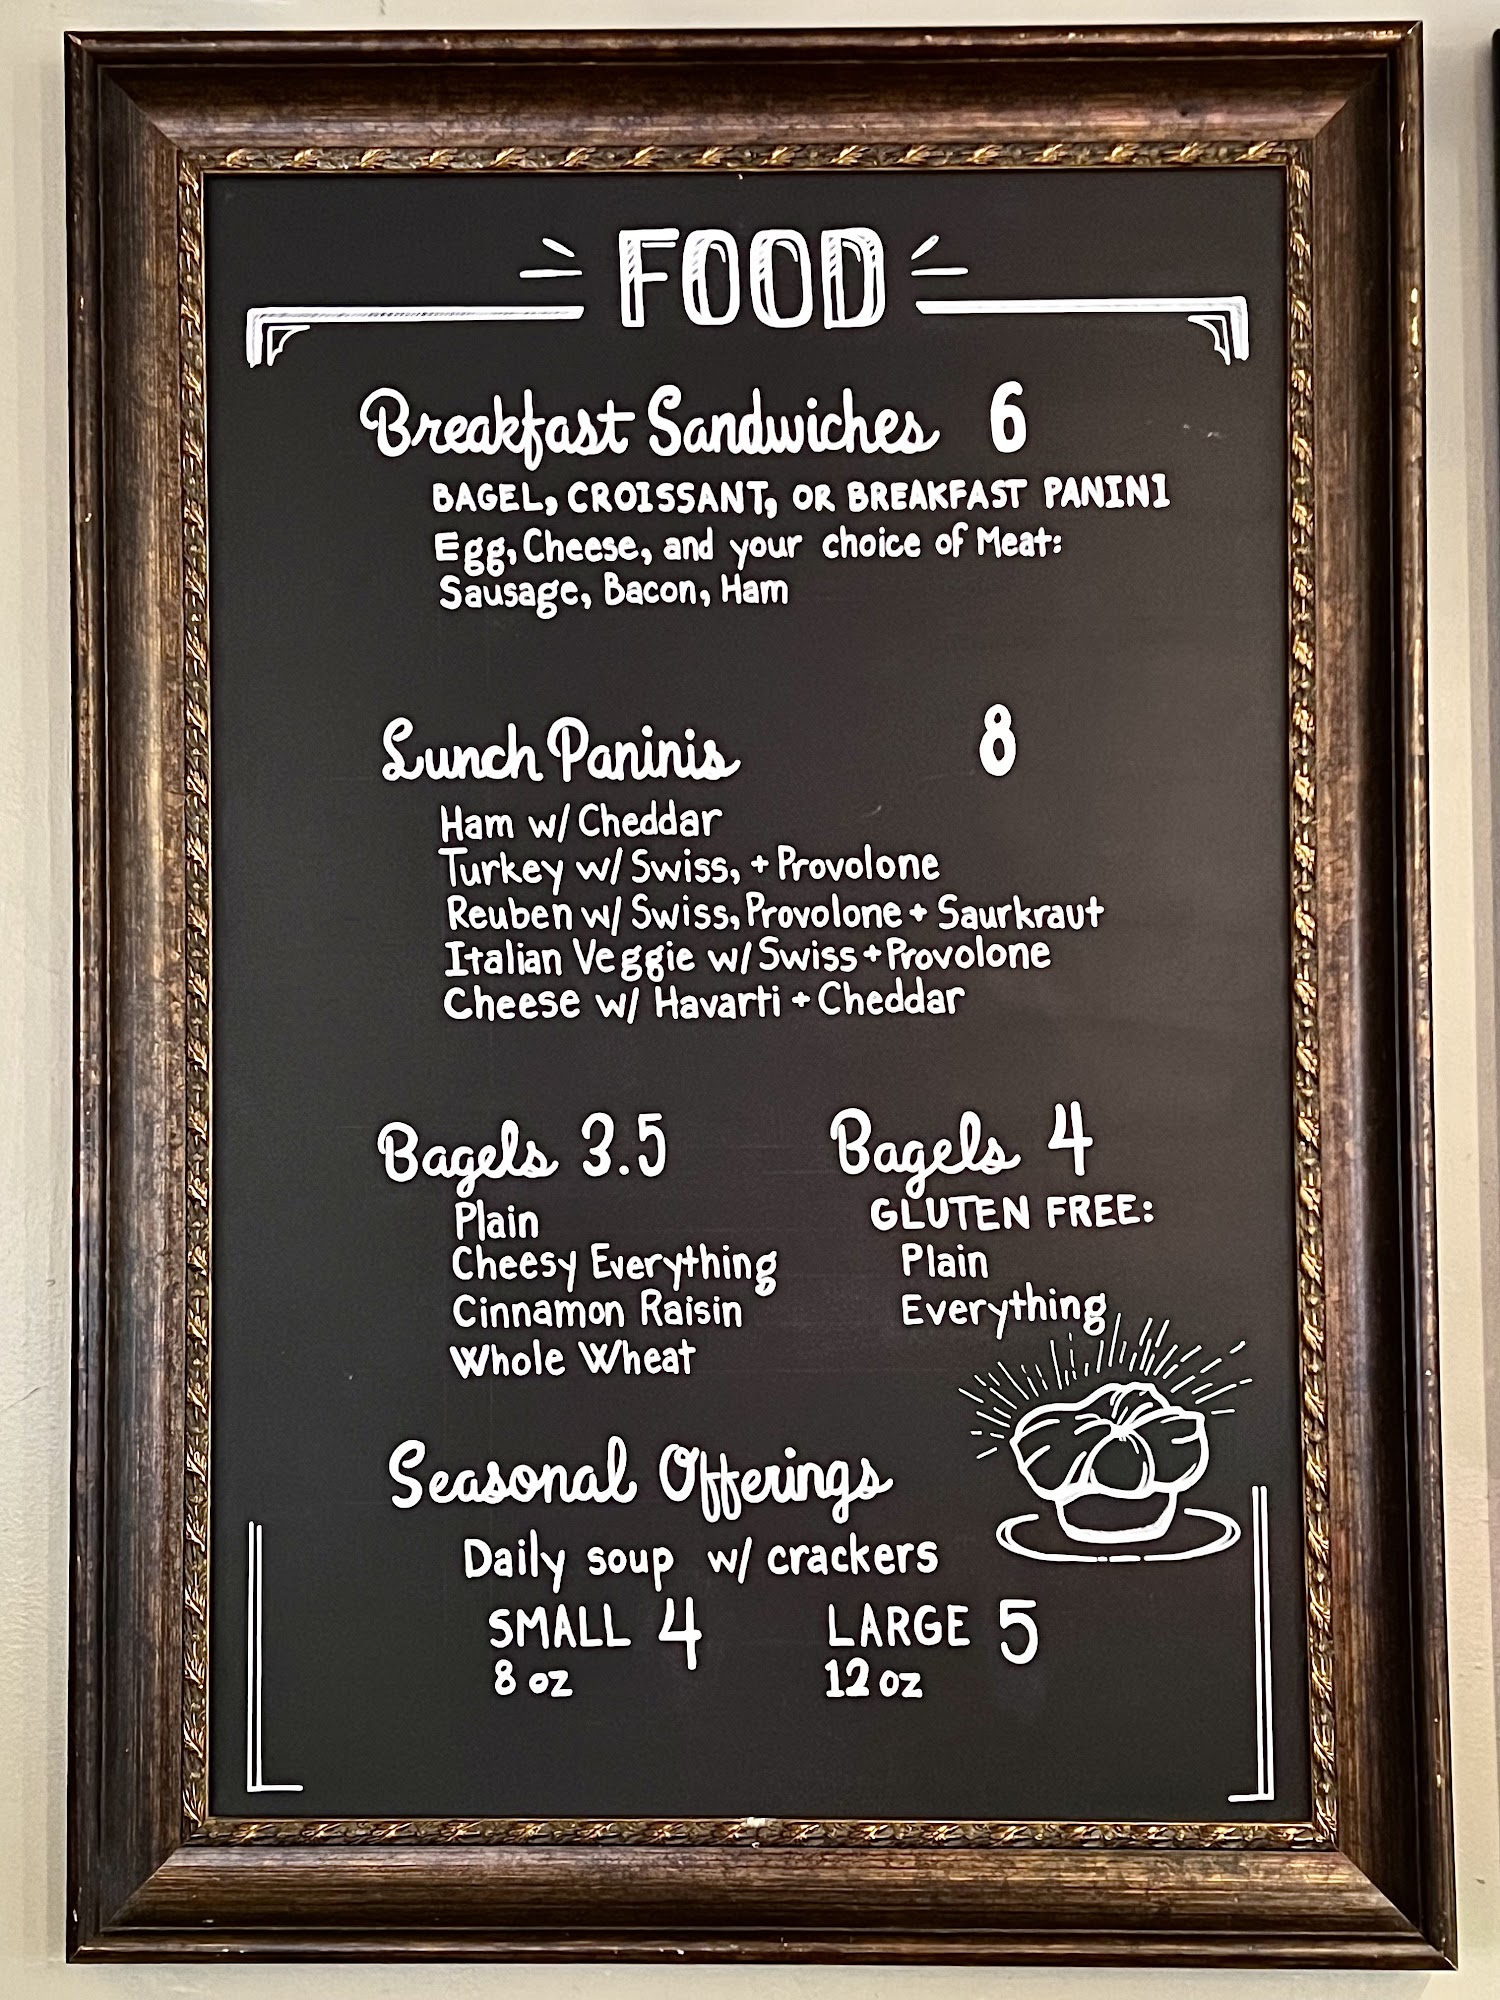 FOOD
Breakfast Sandwiches 6
BAGEL, CROISSANT, OR BREAKFAST PANINI
Egg, Cheese, and your choice of Meat:
Sausage, Bacon, Ham
Lunch Paninis 8
Ham w/ Cheddar
Turkey w/ Swiss, + Provolone
Reuben w/ Swiss, Provolone + Saurkraut
Italian Veggie w/ Swiss + Provolone
Cheese w/ Havarti + Cheddar
Bagels 3.5
Plain
Cheesy Everything
Cinnamon Raisin
Whole Wheat
Bagels 4
GLUTEN FREE:
Plain
Everything
Seasonal Offerings
Daily soup w/ crackers
SMALL 4 LARGE 5
8 oz 12 oz